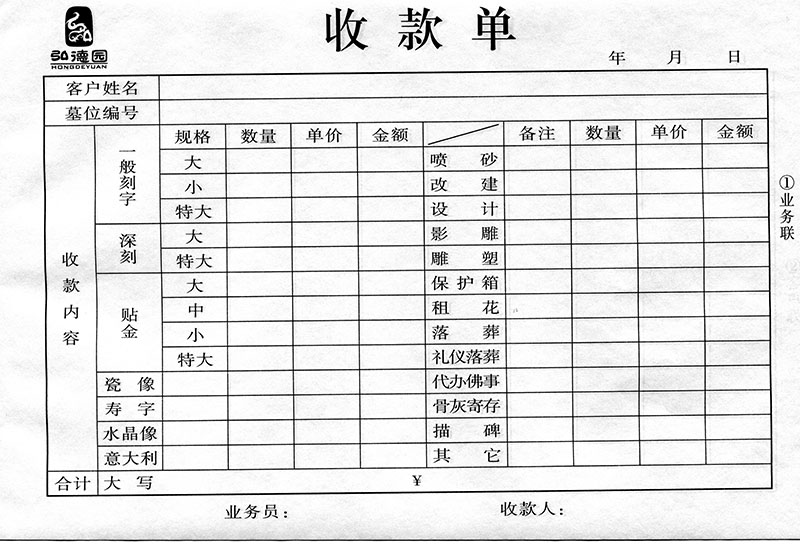 收款单
弘德园
HONGDEYUAN
年 月 日
客户姓名
墓位编号
收款内容
一般刻字 规格 数量 单价 金额 备注 数量 单价 金额
大 喷砂
小 改建
特大 设计
深刻 大 影雕
特大 雕塑
贴金 大 保护箱
中 租花
小 落葬
特大 礼仪落葬
瓷像 代办佛事
寿字 骨灰寄存
水晶像 描碑
意大利 其它
合计 大写 ¥
业务员： 收款人：
①业务联